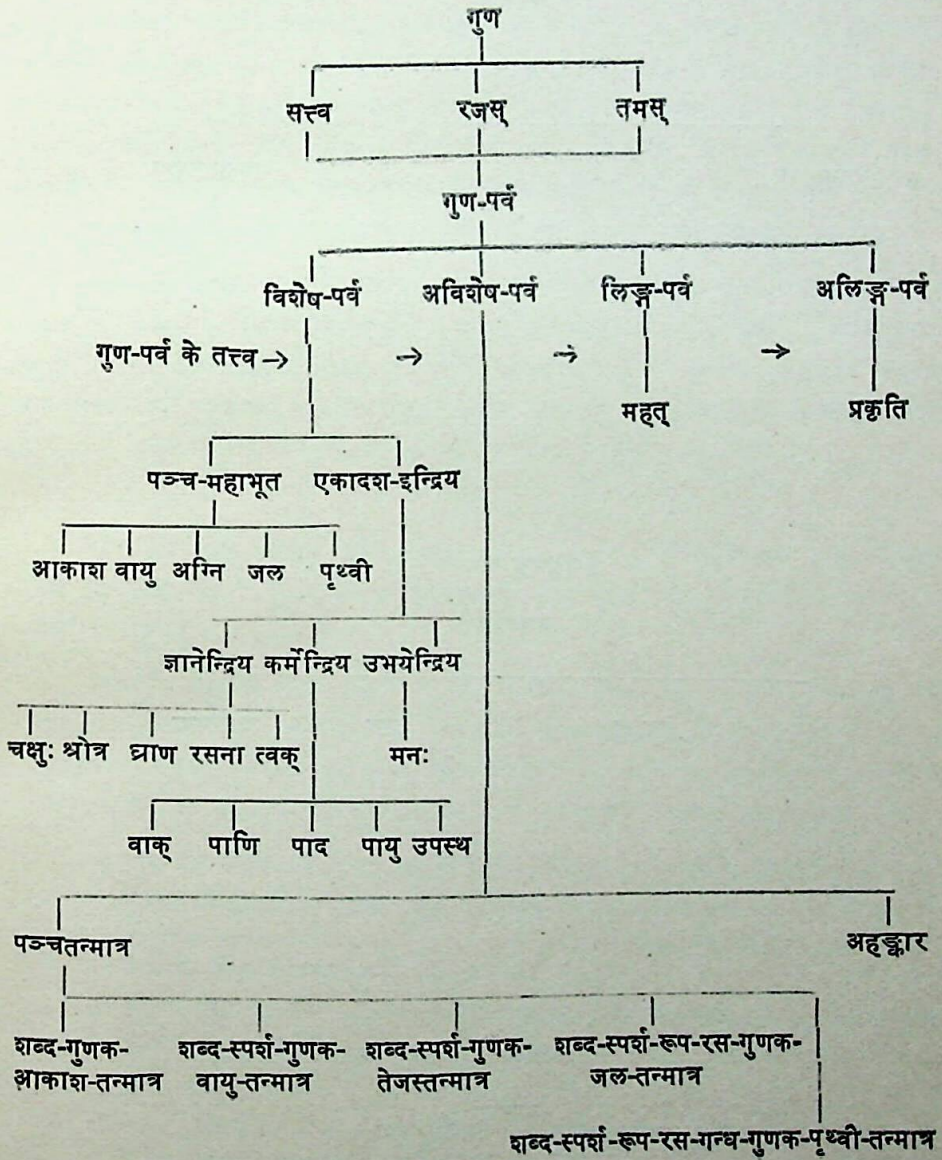 गुण
सत्त्व रजस् तमस्
गुण-पर्व
विशेष-पर्व अविशेष-पर्व लिङ्ग-पर्व अलिङ्ग-पर्व
गुण-पर्व के तत्त्व→ → → →
महत् प्रकृति
पञ्च-महाभूत एकादश-इन्द्रिय
आकाश वायु अग्नि जल पृथ्वी
ज्ञानेन्द्रिय कर्मेन्द्रिय उभयेन्द्रिय
चक्षुः श्रोत्र घ्राण रसना त्वक् मनः
वाक् पाणि पाद पायु उपस्थ
पञ्चतन्मात्र अहङ्कार
शब्द-गुणक- शब्द-स्पर्श-गुणक- शब्द-स्पर्श-गुणक- शब्द-स्पर्श-रूप-रस-गुणक-
आकाश-तन्मात्र वायु-तन्मात्र तेजस्तन्मात्र जल-तन्मात्र
शब्द-स्पर्श-रूप-रस-गन्ध-गुणक-पृथ्वी-तन्मात्र